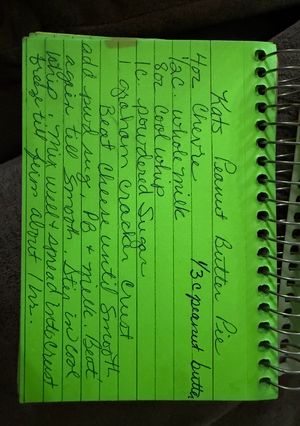 Kats Peanut Butter Pie
4 oz Chevre 1/3 c peanut butter
1/2 c. whole milk
8 oz cool whip
1 c. powdered Sugar
1 graham cracker crust
Beat cheese until smooth
add pwd sug, PB + milk. Beat
again till smooth. Stir in cool
whip. Mix well + spread into crust
freeze till firm about 1 hr.